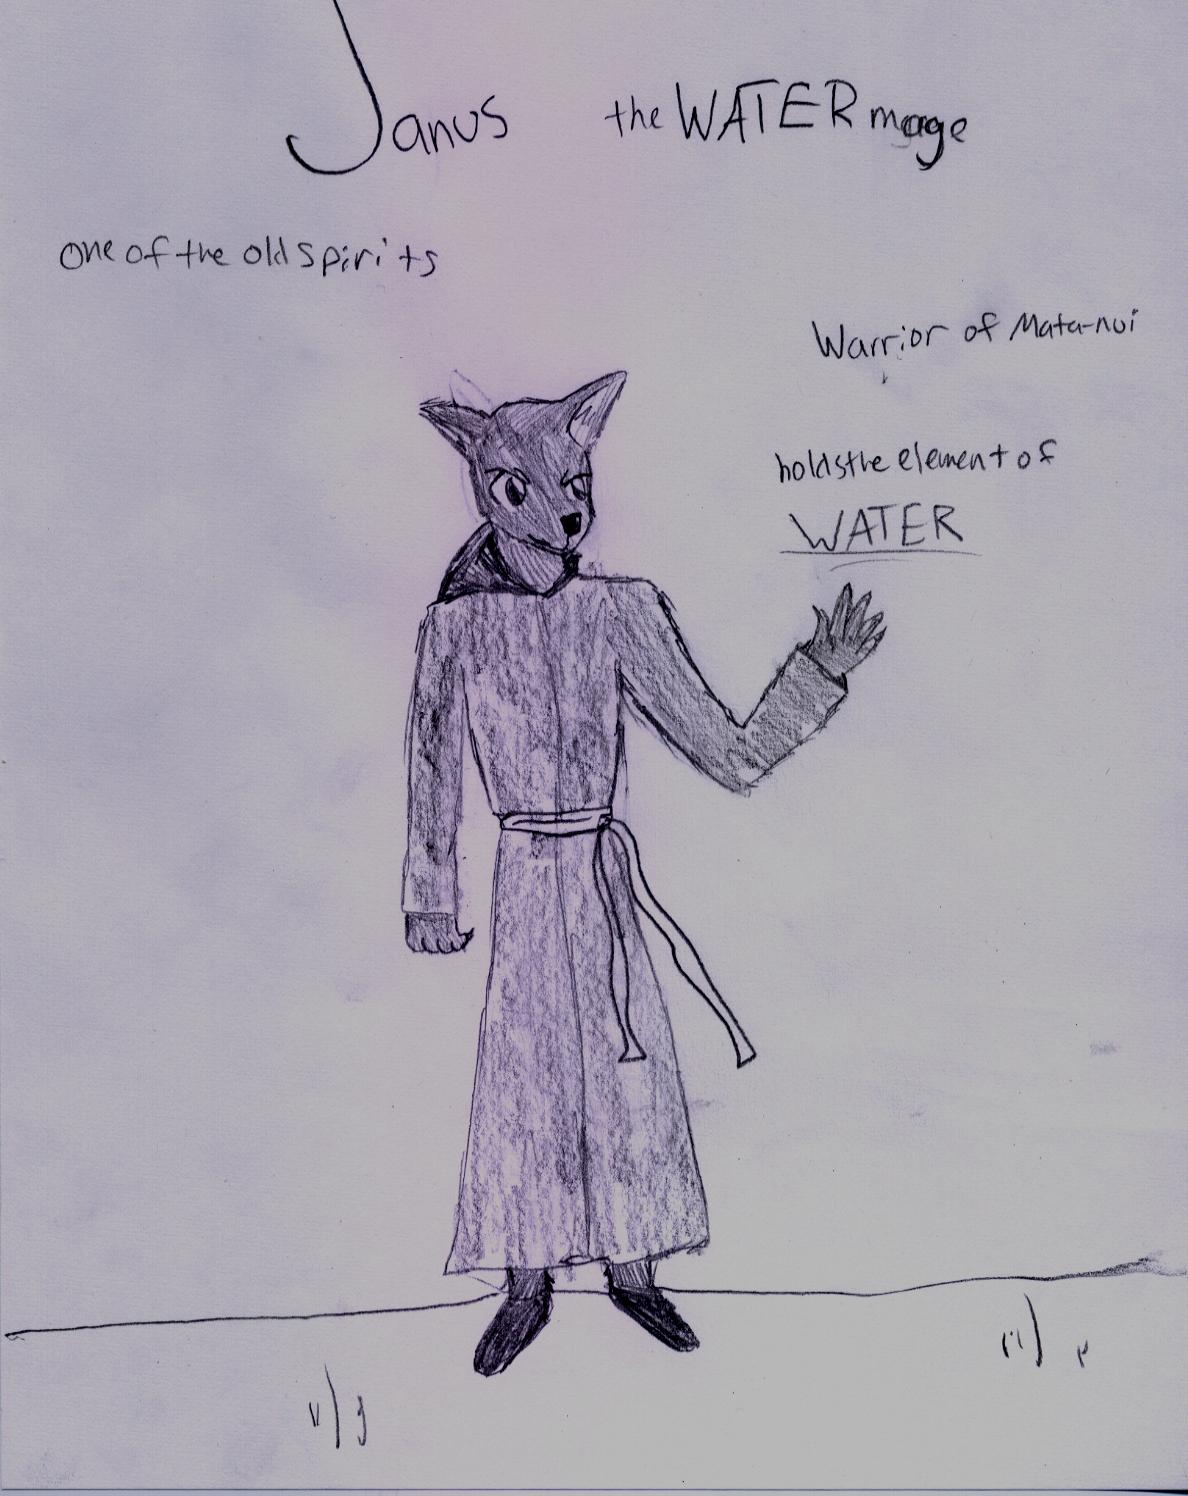 Janus the WATER mage
One of the old spirits
Warrior of Mata-nui
holds the element of
WATER